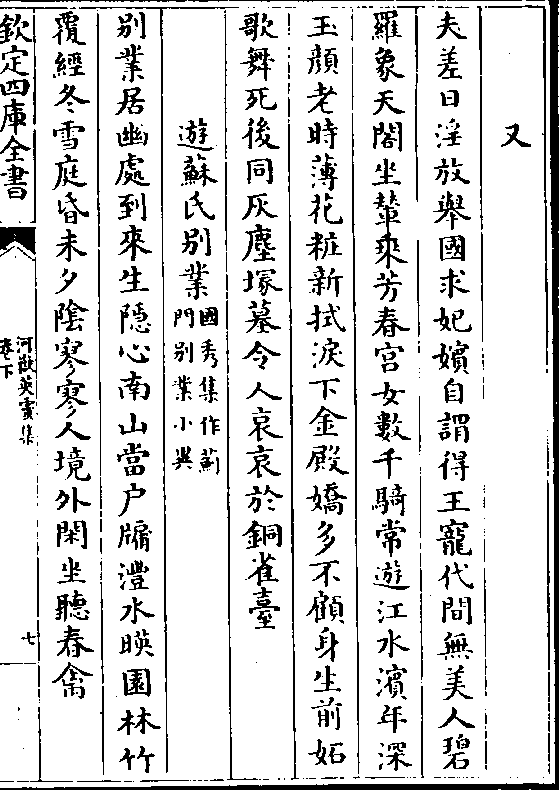 又
夫差日淫放舉國求妃嬪自謂得王寵代間無美人碧
羅象天閣坐輦乘芳春宮女數千騎常遊江水濱年深
玉顔老時薄花粧新拭淚下金殿嬌多不顧身生前妬
歌舞死後同灰塵塚墓令人哀哀於銅雀臺
遊蘇氏別業國秀集作薊
門別業小異
別業居幽處到來生隱心南山當户牖灃水暎園林竹
覆經冬雪庭昏未夕陰寥寥人境外閑坐聽春禽
欽定四庫全書
河嶽英靈集
卷下
七